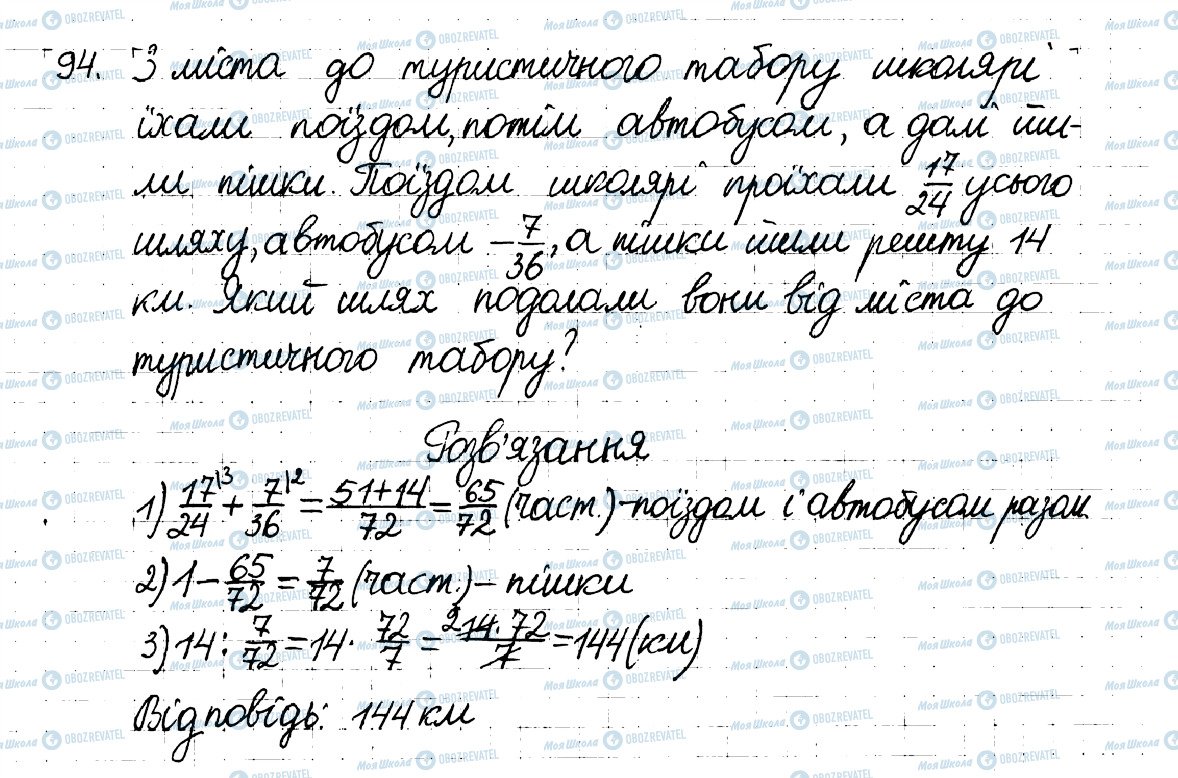 94. З міста до туристичного табору школярі
їхали поїздом, потім автобусом, а далі йш-
ли пішки. Поїздом школярі проїхали 17/24 усього
шляху, автобусом – 7/36, а пішки йшли решту 14
км. Який шлях подолали вони від міста до
туристичного табору?
Розв'язання
1) 17/24 |3 + 7/36 |2 = 51+14/72 = 65/72 (част.) – поїздом і автобусом разом.
2) 1 – 65/72 = 7/72 (част.) – пішки
3) 14 : 7/72 = 14 · 72/7 = 2 14·72/7 = 144 (км)
Відповідь: 144 км